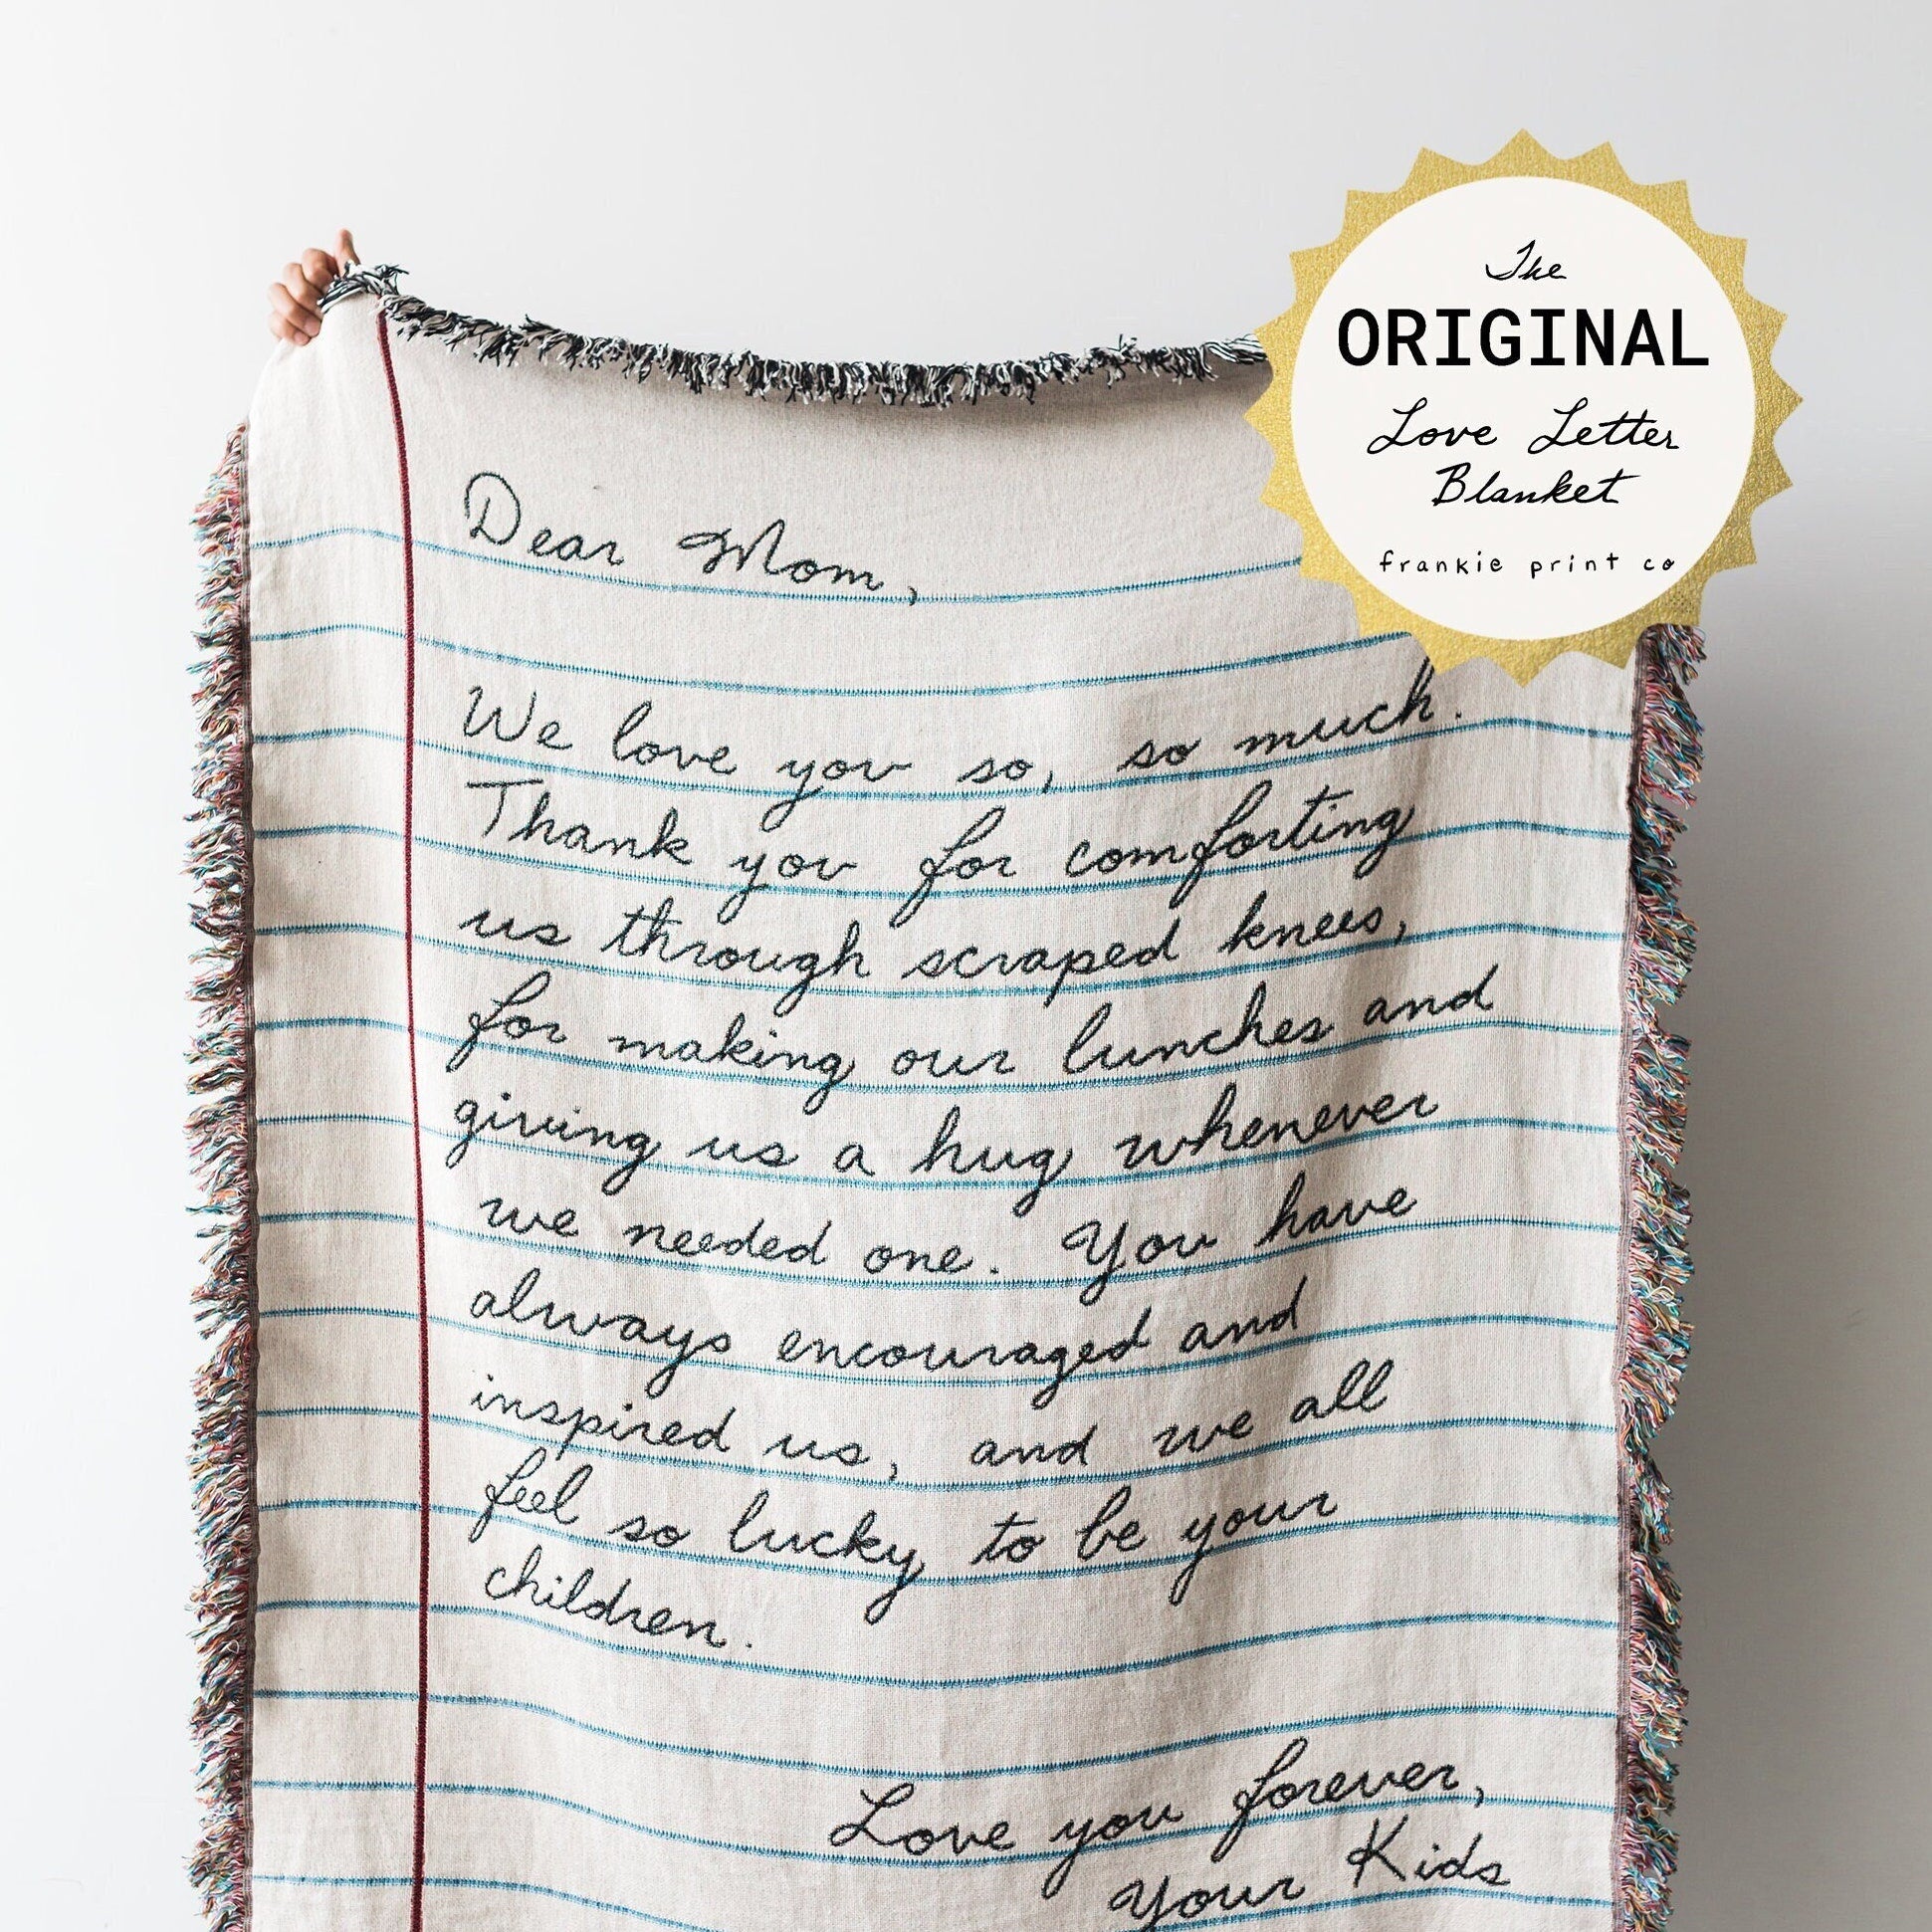 The
ORIGINAL
Love Letter
Blanket
frankie print co
Dear Mom,
We love you so, so much.
Thank you for comforting
us through scraped knees,
for making our lunches and
giving us a hug whenever
we needed one. You have
always encouraged and
inspired us, and we all
feel so lucky to be your
children.
Love you forever,
Your Kids